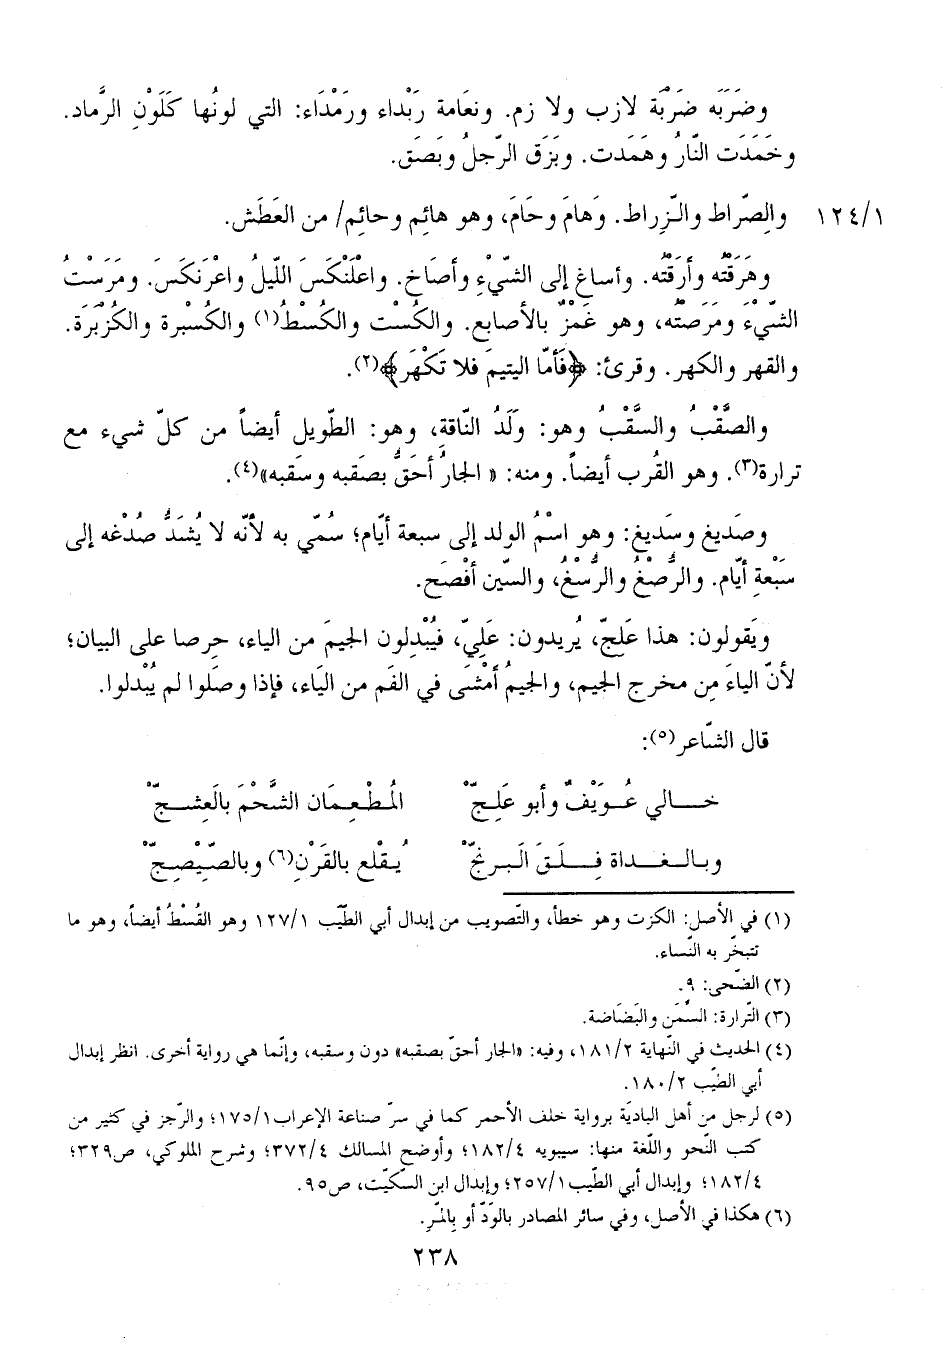 وضَرَبَه ضَرْبَة لازب ولا زم. ونعَامة رَبْداء ورَمْدَاء: التي لونُها كَلَوْنِ الرَّماد.
وخَمَدَت النّارُ وهَمَدت. وبَزَق الرّجلُ وبَصَق.
١٢٤/١ والصِّراط والزِّراط. وَهامَ وحَامَ، وهو هائِم وحائِم/ من العَطَش.
وهَرَقْتُه وأَرَقْتُه. وأساغ إلى الشّيْءِ وأصَاخ. واعْلَنْكَسَ اللّيلُ واعْرَنكَسَ. ومَرَسْتُ
الشّيْءَ ومَرَصْتُه، وهو غَمزٌ بالأصابع. والكُسْت والكُسْطُ(١) والكُسْبرة والكُزْبَرَة.
والقهر والكهر. وقرئ: ﴿فَأمّا اليتيمَ فلا تَكْهَر﴾(٢).
والصَّقْبُ والسَّقْبُ وهو: وَلَدُ النّاقةِ، وهو: الطّويل أيضاً من كلّ شيء مع
ترارة(٣). وهو القُرب أيضاً. ومنه: « الجارُ أحَقُّ بصَقبه وسَقبه»(٤).
وصَديغ وسَديغ: وهو اسْمُ الولد إلى سبعة أيّام؛ سُمّي به لأنّه لا يُشَدُّ صُدْغه إلى
سَبْعةِ أيّام. والرُّصْغُ والرُّسْغُ، والسّين أفْصَح.
ويَقولون: هذا عَلِجّ، يُريدون: عَلِيّ، فيُبْدِلون الجيمَ من الياء، حِرصا على البيان؛
لأنّ الياءَ مِن مخرج الجيم، والجيمُ أمْشَى في الفَم من الياَء، فإذا وصَلوا لم يُبْدلوا.
قال الشّاعر(٥):
خـــالي عُــوَيْفٌ وأبو عَلِـجّْ المُـطْـعِـمَان الشَّحْمَ بالعَشِـــجّْ
وبـالــغــداة فِــلَــقَ الَــبرنجّْ يُـقْلع بالقَرْنِ(٦) وبالصِّيْصِـجّْ
(١) في الأصل: الكزت وهو خطأ، والتّصويب من إبدال أبي الطّيب ١٢٧/١ وهو القُسْطُ أيضاً، وهو ما
تتبخّر به النّساء.
(٢) الضّحى: ٩.
(٣) التّرارة: السُّمَن والبَضَاضة.
(٤) الحديث في النّهاية ١٨١/٢، وفيه: «الجار أحقّ بصقبه» دون وسقبه، وإنّما هي رواية أخرى. انظر إبدال
أبي الطيّب ١٨٠/٢.
(٥) لرجل من أهل الباديَة برواية خلف الأحمر كما في سرّ صناعة الإعراب١٧٥/١؛ والرّجز في كثير من
كتب النّحو واللّغة منها: سيبويه ١٨٢/٤؛ وأوضح المسالك ٣٧٢/٤؛ وشرح الملوكي، ص٣٢٩؛
١٨٢/٤؛ وإبدال أبي الطّيب٢٥٧/١؛ وإبدال ابن السّكيّت، ص٩٥.
(٦) هكذا في الأصل، وفي سائر المصادر بالوَدّ أو بِالمَرّ.
٢٣٨